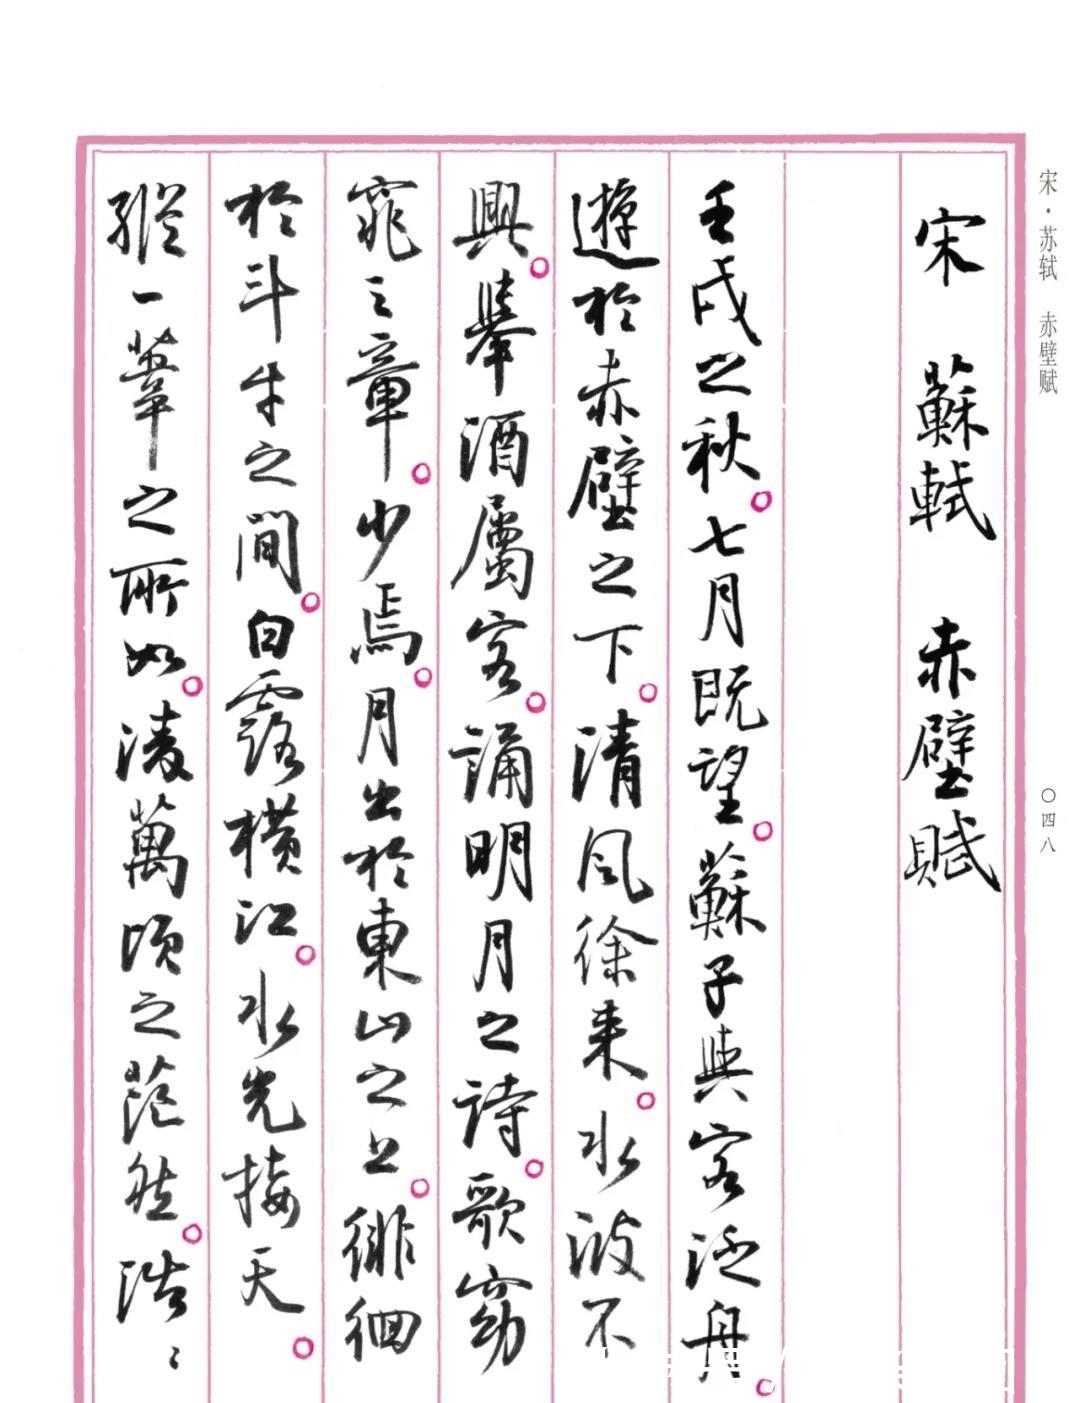 宋 蘇軾 赤壁賦
壬戌之秋。七月既望。蘇子與客泛舟。
遊於赤壁之下。清風徐来。水波不
興。舉酒屬客。誦明月之詩。歌窈
窕之章。少焉。月出於東山之上。徘徊
於斗牛之間。白露橫江。水光接天。
縱一葦之所如。淩萬頃之茫然。浩〻
宋·苏轼 赤壁赋
〇四八